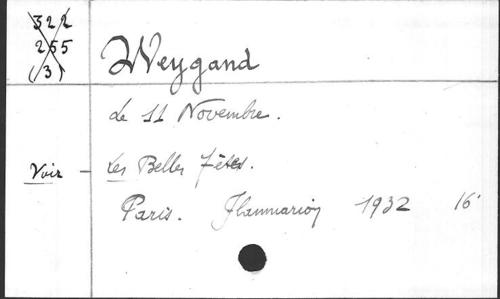 322
255
(3)
Weygand
Le 11 Novembre.
Voir - Les Belles Fêtes.
Paris. Flammarion 1932 16°